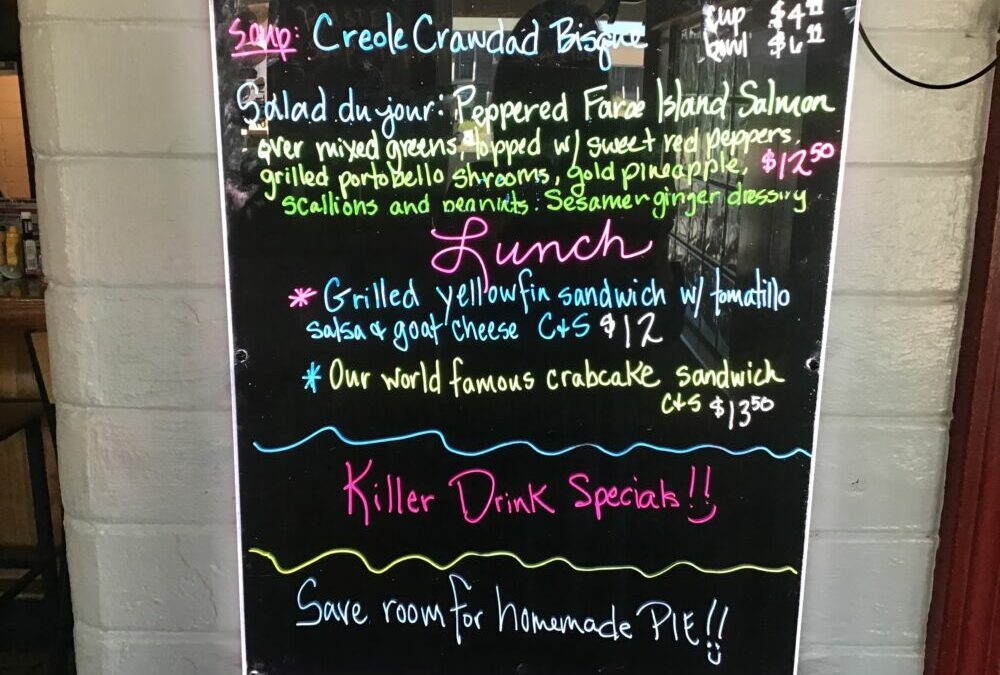 Soup: Creole Crawdad Bisque
cup $4
bowl $6
Salad du jour: Peppered Faroe Island Salmon
over mixed greens, topped w/ sweet red peppers,
grilled portobello shrooms, gold pineapple, $12.50
scallions and peanuts. Sesame ginger dressing
Lunch
* Grilled yellowfin sandwich w/ tomatillo
salsa & goat cheese C+S $12
* Our world famous crabcake sandwich
C+S $13.50
Killer Drink Specials!!
Save room for homemade PIE!!